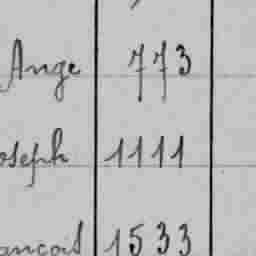 Ange 773
oseph 1111
ançois 1533